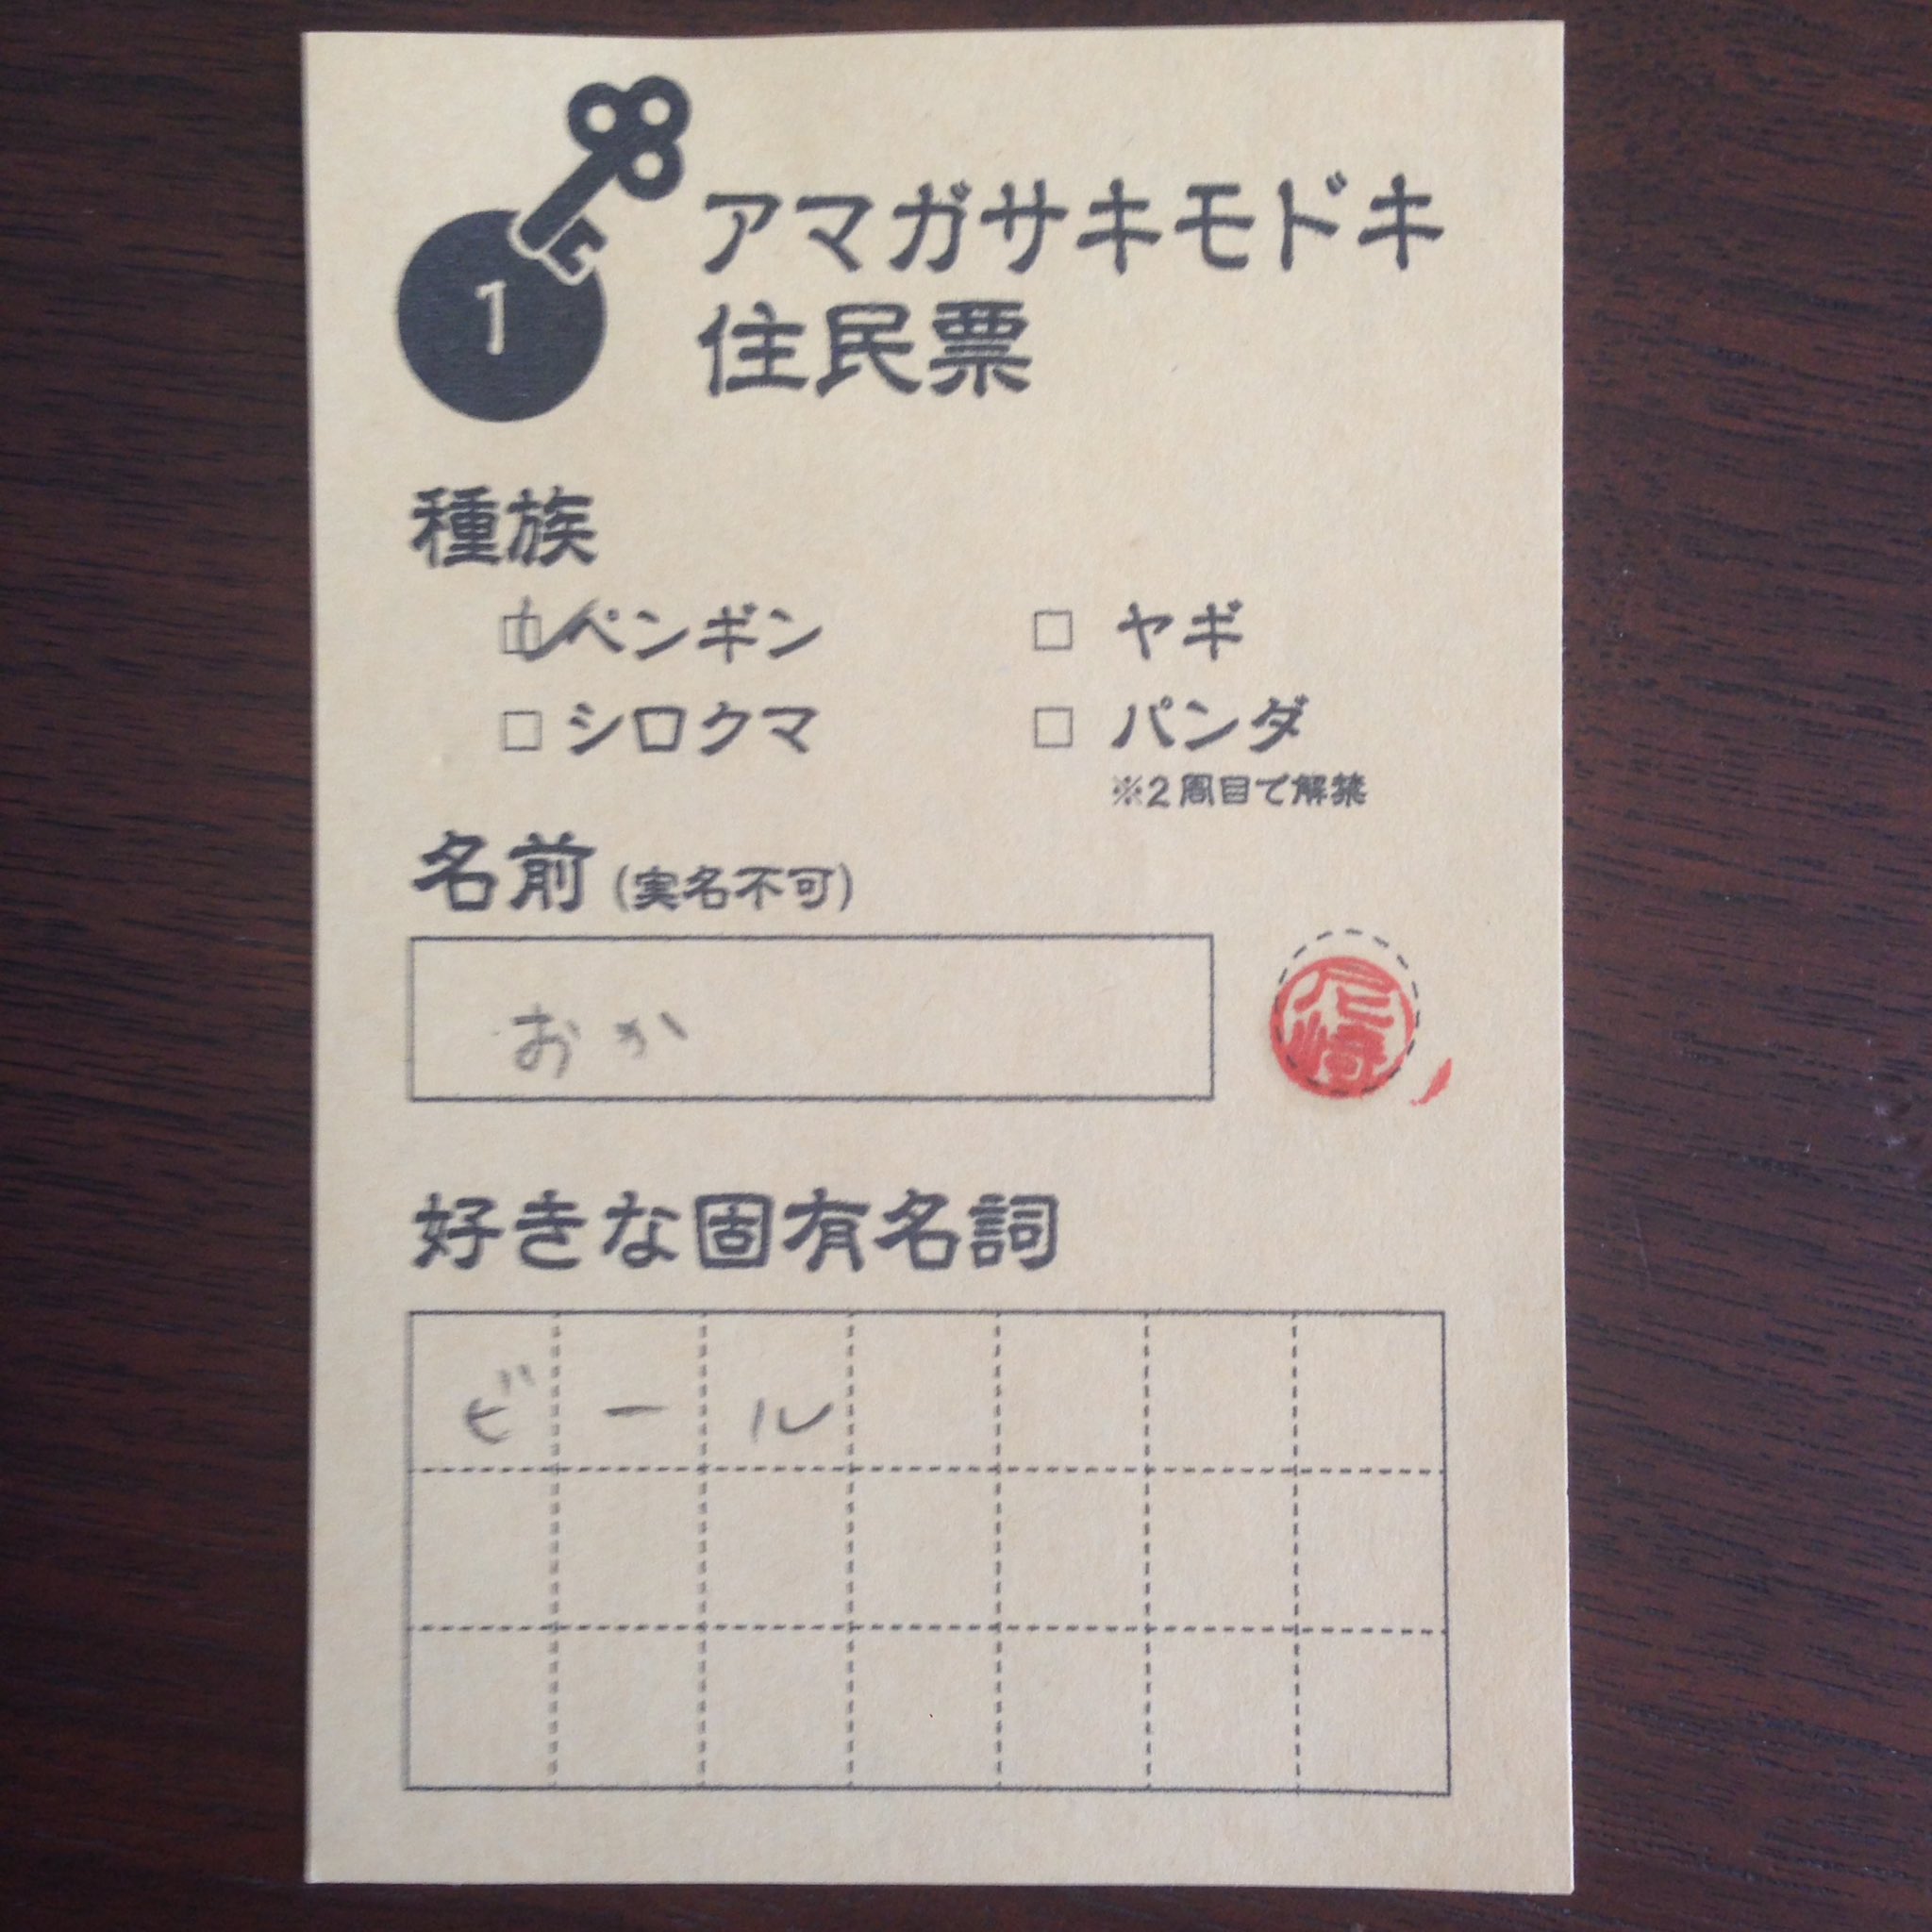 1
アマガサキモドキ
住民票
種族
ペンギン □ ヤギ
□ シロクマ □ パンダ
※2周目で解禁
名前(実名不可)
おか
好きな固有名詞
ビール